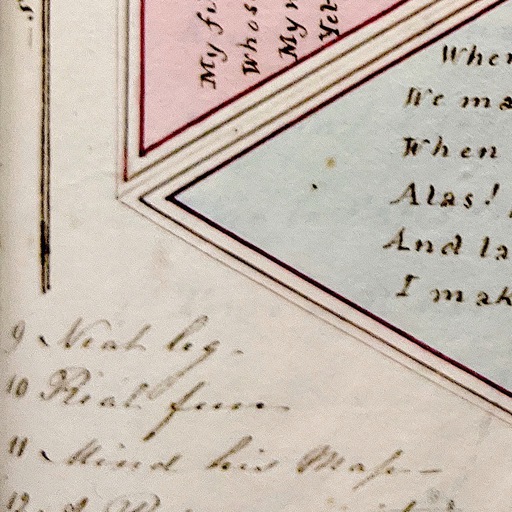 My fi
Whos
My
Yet
When
We ma
When
Alas!
And la
I mak
9 Neat leg.
10 Real fun
11 Mind his Mass
12 A